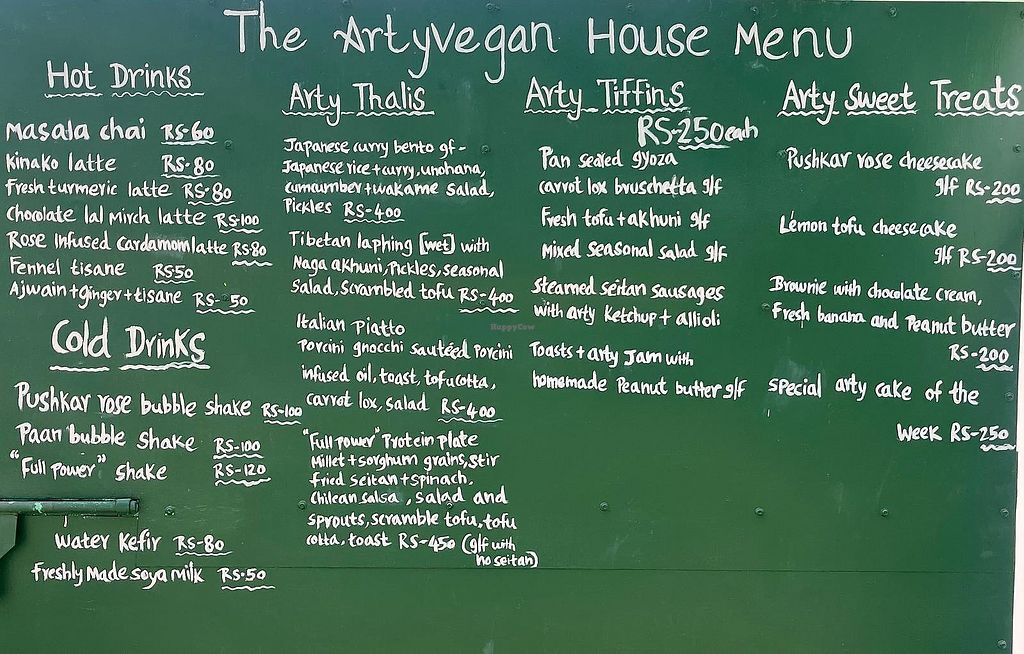 The Artyvegan House Menu
Hot Drinks
Masala chai RS-60
Kinako latte RS-80
Fresh turmeric latte RS-80
Chocolate lal Mirch latte RS-100
Rose Infused Cardamom latte RS-80
Fennel tisane RS50
Ajwain+ginger+tisane RS-50
Cold Drinks
Pushkar rose bubble shake RS-100
Paan bubble shake RS-100
"Full Power" shake RS-120
Water Kefir RS-80
Freshly Made soya milk RS-50
Arty Thalis
Japanese curry bento gf-
Japanese rice+curry, unohana,
cumcumber+wakame salad,
Pickles RS-400
Tibetan laphing [wet] with
Naga akhuni, Pickles, seasonal
salad, scrambled tofu RS-400
Italian Piatto
Porcini gnocchi sautéed Porcini
infused oil, toast, tofucotta,
carrot lox, salad RS-400
"Full power" Protein plate
Millet+sorghum grains, stir
fried seitan+spinach,
Chilean salsa, salad and
sprouts, scramble tofu, tofu
cotta, toast RS-450 (g/f with
no seitan)
Arty Tiffins
RS-250 each
Pan seared gyoza
carrot lox bruschetta g/f
Fresh tofu+akhuni g/f
Mixed seasonal salad g/f
Steamed seitan sausages
with arty Ketchup+allioli
Toasts+arty Jam with
homemade Peanut butter g/f
Arty Sweet Treats
Pushkar rose cheesecake
g/f RS-200
Lemon tofu cheesecake
g/f RS-200
Brownie with chocolate cream,
Fresh banana and Peanut butter
RS-200
special arty cake of the
Week RS-250
HappyCow